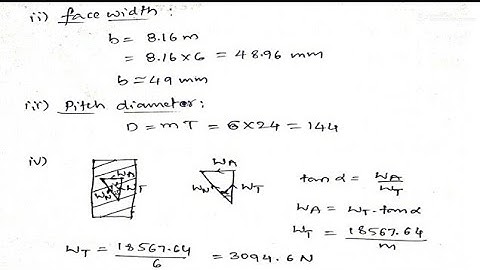 ii) face width :
b = 8.16 m
= 8.16 x 6 = 48.96 mm
b ≃ 49 mm
iii) Pitch diameter :
D = m T = 6 x 24 = 144
iv)
WA
WN
WT
WA
WN
WT
tan α = WA / WT
WA = WT · tan α
WT = 18567.64 / m
WT = 18567.64 / 6 = 3094.6 N